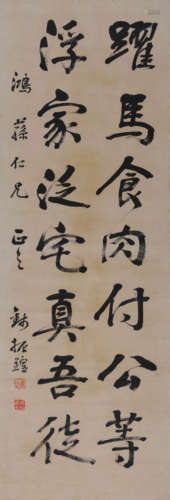 躍馬食肉付公等
浮家泛宅真吾徒
鴻蓀仁兄正之
錢振鍠